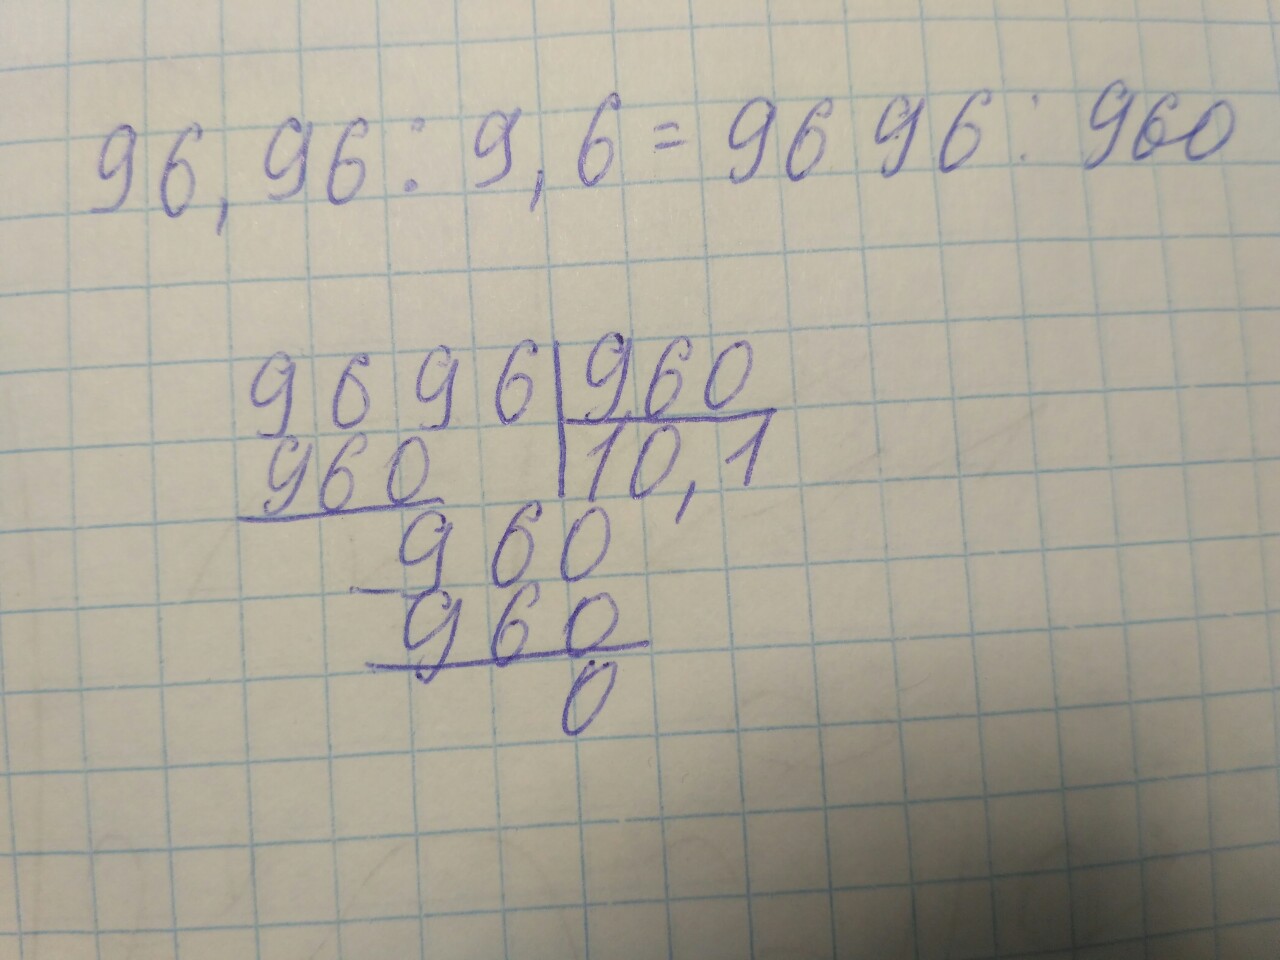 96,96:9,6=9696:960
9696|960
960 10,1
960
960
0